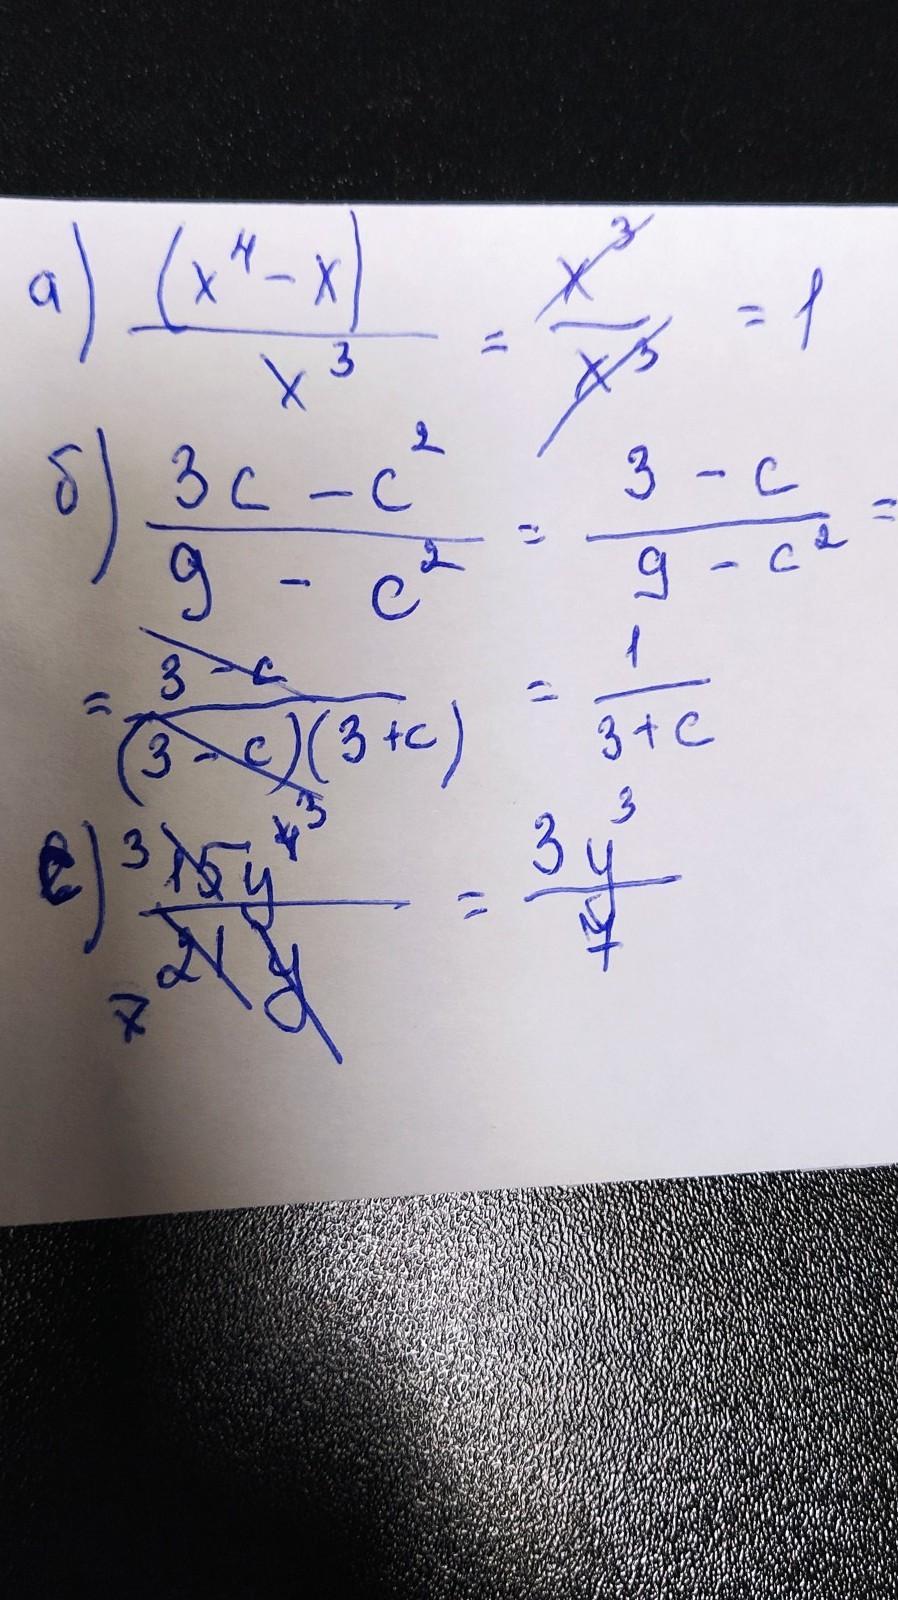 а) (x⁴ - x) / x³ = x³ / x³ = 1
б) 3c - c² / 9 - c² = 3 - c / 9 - c² =
= 3 - c / (3 - c)(3 + c) = 1 / 3 + c
е) 3 15y⁴ 3 / 7 21 y = 3y³ / 7